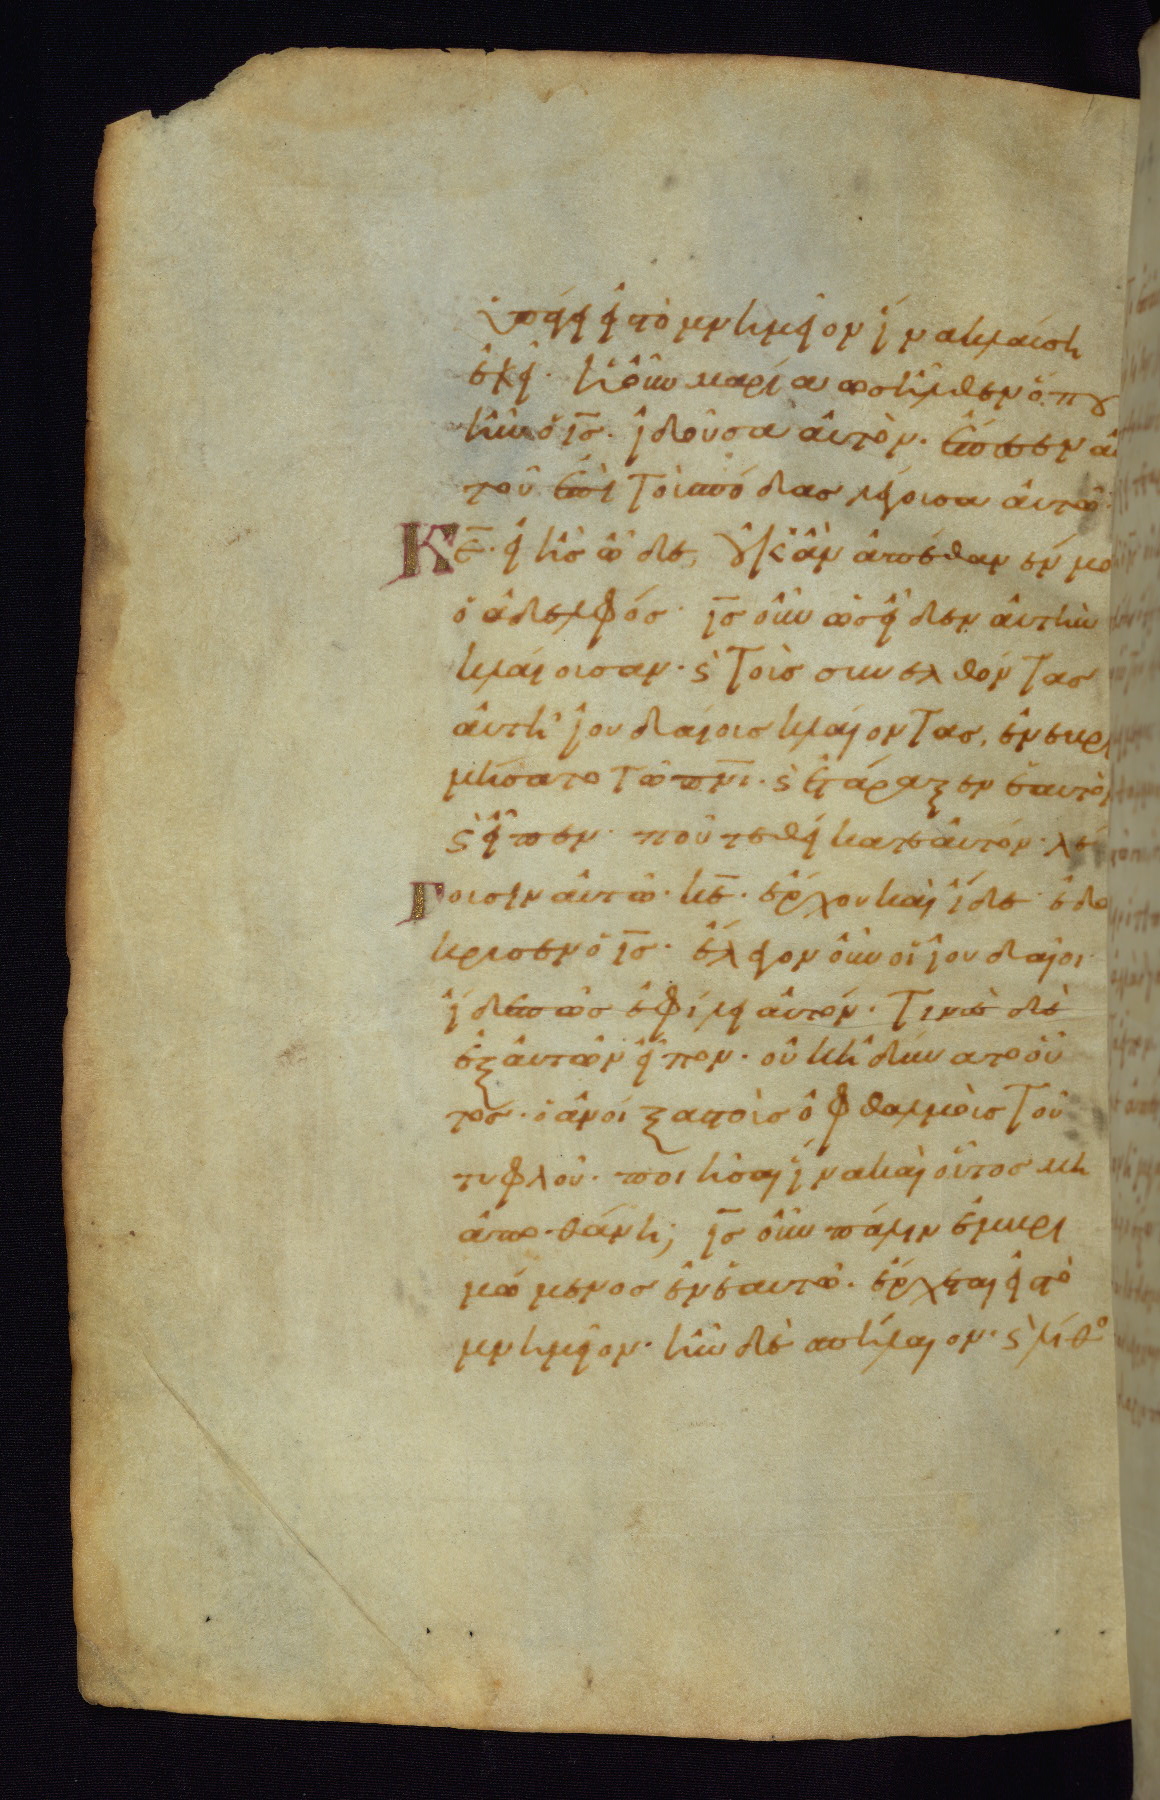 ὑπάγει εἰς τὸ μνημεῖον ἵνα κλαύσῃ
ἐκεῖ. ἡ οὖν μαρία ὡς ἦλθεν ὅπου
ἦν ὁ ις. ἰδοῦσα αὐτὸν. ἔπεσεν αὐ
τοῦ ἐπὶ τοὺς πόδας λέγουσα αὐτῶ.
Κε. εἰ ἦς ὧδε, οὐκ ἂν ἀπέθανέν μου
ὁ ἀδελφός. ις οὖν ὡς εἶδεν αὐτὴν
κλαίουσαν. ϗ τοὺς συνελθόντας
αὐτῆ ἰουδαίους κλαίοντας, ἐνεβρι
μήσατο τῶ πνι. ϗ ἐτάραξεν ἑαυτὸν
ϗ εἶπεν. ποῦ τεθείκατε αὐτόν. λέ
γουσιν αὐτῶ. κε. ἔρχου καὶ ἴδε. ἐδά
κρυσεν ὁ ις. ἔλεγον οὖν οἱ ἰουδαῖοι.
ἴδε πῶς ἐφίλει αὐτόν. τινὲς δὲ
ἐξ αὐτῶν εἶπον. οὐκ ἠδύνατο οὗ
τος. ὁ ἀνοίξας τοὺς ὀφθαλμοὺς τοῦ
τυφλοῦ. ποιῆσαι ἵνα καὶ οὗτος μὴ
ἀποθάνη; ις οὖν πάλιν ἐμβρι
μώμενος ἐν ἑαυτῶ. ἔρχεται εἰς τὸ
μνημεῖον. ἦν δὲ σπήλαιον. ϗ λίθο